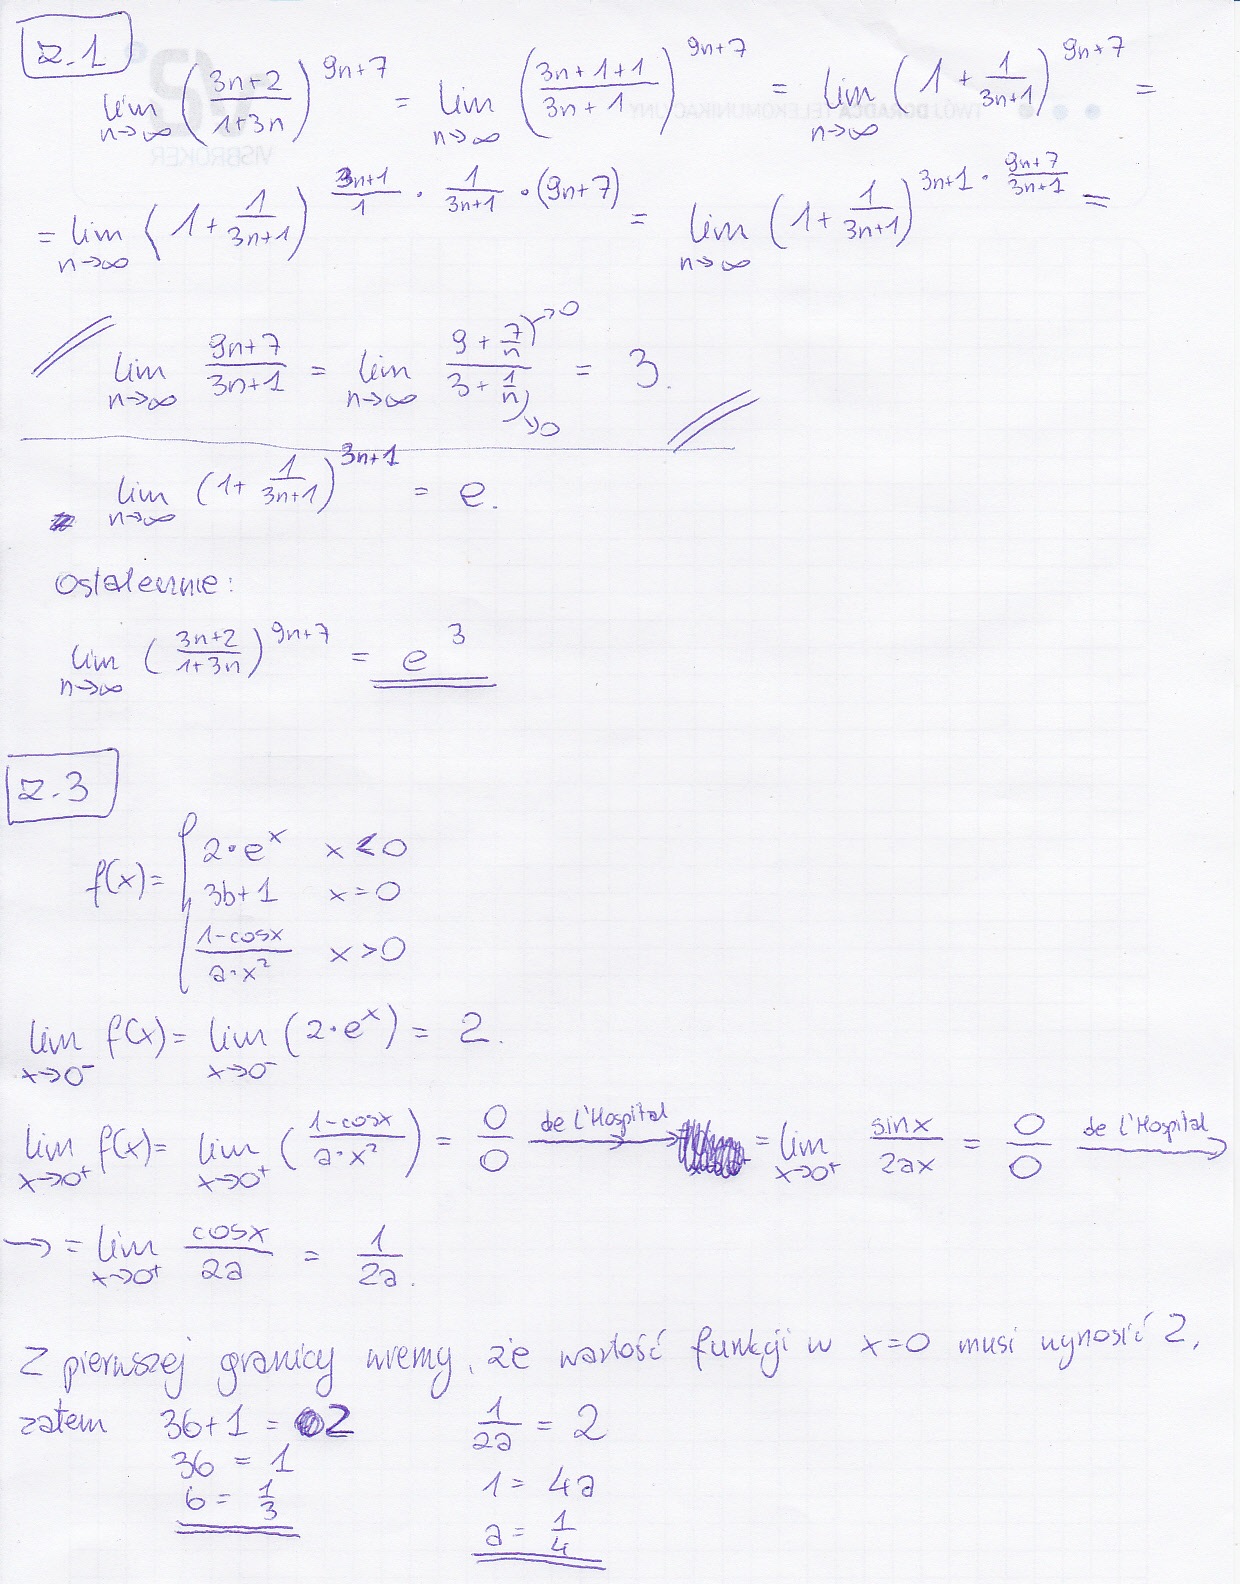 z.1
lim n→∞ (3n+2 / 1+3n)^9n+7 = lim n→∞ (3n+1+1 / 3n+1)^9n+7 = lim n→∞ (1 + 1/3n+1)^9n+7 =
= lim n→∞ (1 + 1/3n+1)^3n+1/1 · 1/3n+1 · (9n+7) = lim n→∞ (1 + 1/3n+1)^3n+1 · 9n+7/3n+1 =
// lim n→∞ 9n+7 / 3n+1 = lim n→∞ 9 + 7/n →0 / 3 + 1/n →0 = 3. //
lim n→∞ (1+ 1/3n+1)^3n+1 = e.
Ostatecznie:
lim n→∞ (3n+2 / 1+3n)^9n+7 = e^3
z.3
f(x) = { 2·e^x x<0
3b+1 x=0
1-cosx / a·x² x>0
lim x→0⁻ f(x) = lim x→0⁻ (2·e^x) = 2.
lim x→0⁺ f(x) = lim x→0⁺ (1-cosx / a·x²) = 0/0 de l'Hospital → = lim x→0⁺ sinx / 2ax = 0/0 de l'Hospital →
→ = lim x→0⁺ cosx / 2a = 1/2a.
Z pierwszej granicy wiemy, że wartość funkcji w x=0 musi wynosić 2,
zatem 3b+1 = 2 1/2a = 2
3b = 1 1 = 4a
b = 1/3 a = 1/4